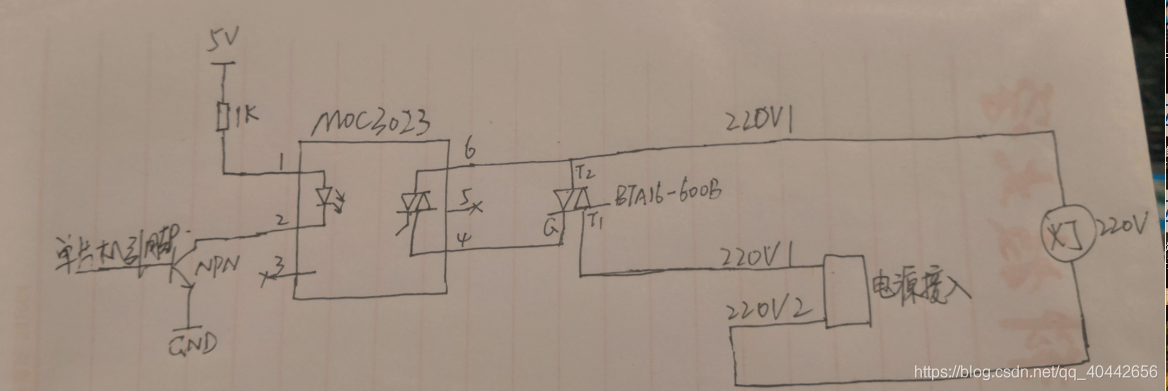 5V
1K
MOC3023
220V1
1
6
T2
5
BTA16-600B
G
T1
2
4
220V
灯
单片机引脚
NPN
3
220V1
电源接入
220V2
GND
https://blog.csdn.net/qq_40442656